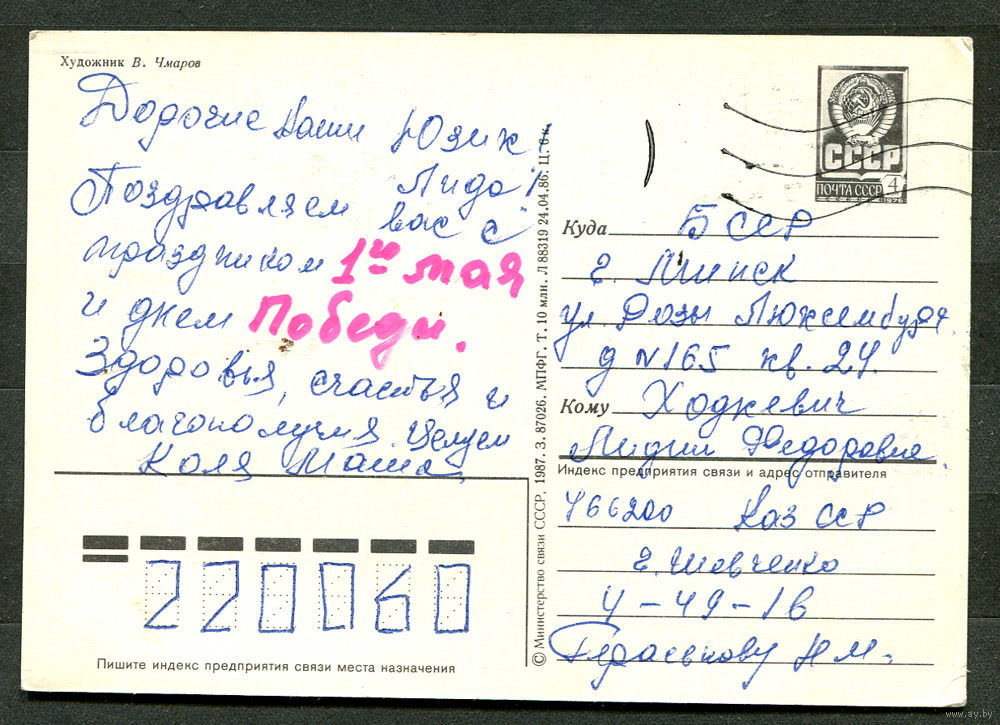 Художник В. Чмаров
Дорогие наши Юзик
Лида!
Поздравляем вас с
праздником 1ш мая
и днем Победы.
Здоровья, счастья и
благополучия. Целуем
Коля Маша
СССР
ПОЧТА СССР 4
1976
Куда БССР
г. Минск
ул. Розы Люксембург
д N165 кв. 24.
Кому Ходкевич
Лидии Федоровне.
Индекс предприятия связи и адрес отправителя
466200 Каз ССР
г. Шевченко
4-49-16
Гераськову НМ.
220060
Пишите индекс предприятия связи места назначения
© Министерство связи СССР, 1987. З. 87026. МПФГ. Т. 10 млн. Л 88319 24.04.86. Ц. 6 к.
www.ay.by